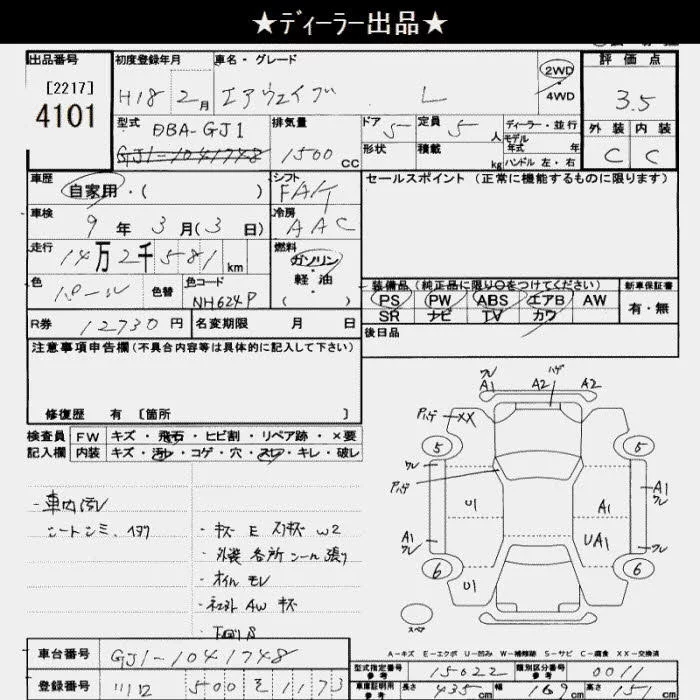 ★ディーラー出品★
出品番号
[2217]
4101
初度登録年月
H18 2月
車名・グレード
エアウェイブ L
2WD
4WD
評価点
3.5
型式
DBA-GJ1
GJ1-1041748
排気量
1500 CC
ドア 5
定員 5 人
形状
積載 kg
ディーラー・並行
モデル年式 年
ハンドル 左・右
外装 内装
C C
車歴
自家用・( )
シフト
FAT
セールスポイント (正常に機能するものに限ります)
車検
9年3月(3日)
冷房
AAC
走行
14万2千581km
燃料
ガソリン
軽油
( )
色
パール
色替
色コード
NH624P
装備品(純正品に限り○をつけてください)
PS PW ABS エアB AW
SR ナビ TV カワ
新車保証書
有・無
R券 12730円
名変期限 月 日
後日品
注意事項申告欄(不具合内容等は具体的に記入して下さい)
修復歴 有 [箇所 ]
検査員
記入欄
FW キズ・飛石・ヒビ割・リペア跡・×要
内装 キズ・汚レ・コゲ・穴・スレ・キレ・破レ
・車内汚レ
シートシミ、
・キズ E スリキズ W2
・外装 各所 シール張り
・オイルモレ
AW キズ
ワレ
A1
ハゲ
A2
A2
XX
5
5
ワレ
U1
A1
A1
ワレ
A1
ワレ
UA1
ワレ
6
6
U1
スペア
A-キズ E-エクボ U-凹み W-補修跡 S-サビ C-腐食 XX-交換済
車台番号
GJ1-1041748
登録番号
500 1173
型式指定番号
参考
15022
類別区分番号
参考
0011
車庫証明用
参考
長さ 435cm
幅 169cm
高さ 151cm